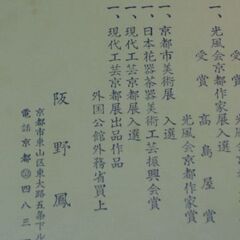 一、光風会京都作家展入選
受賞 高島屋賞
受賞 光風会京都作家賞
一、京都市美術展 入選
一、日本花器茶器美術工芸振興会賞
一、現代工芸京都展入選
一、現代工芸京都展出品作品
外国公館外務省買上
阪野鳳
京都市東山区東大路五条下ル
電話京都 四八三